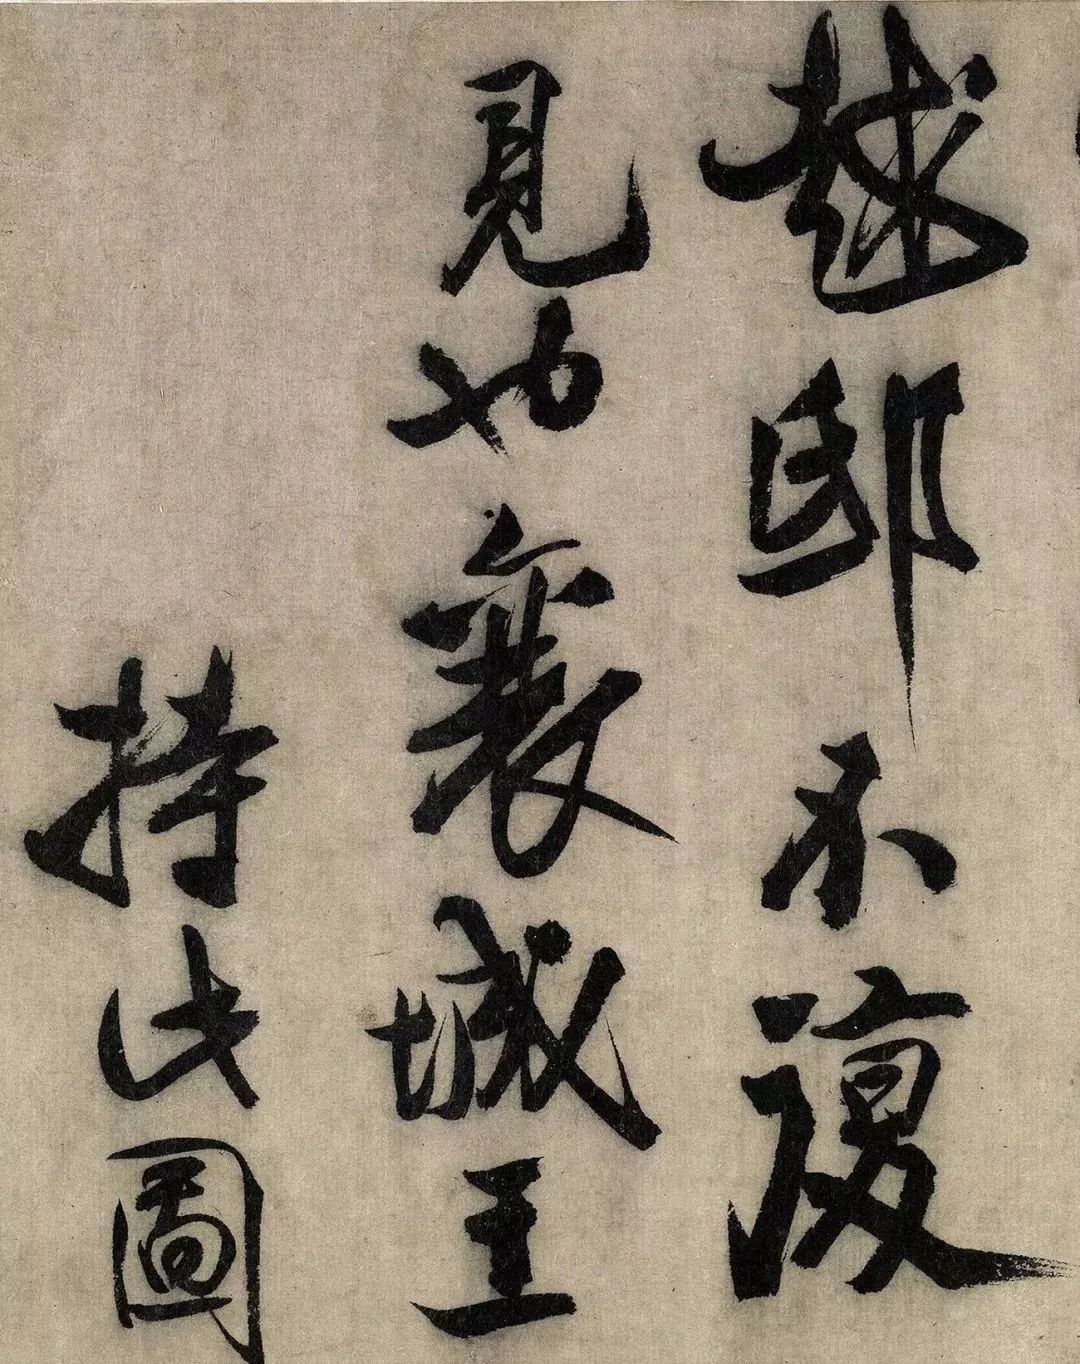 越邸不復
見也襄城王
持此圖